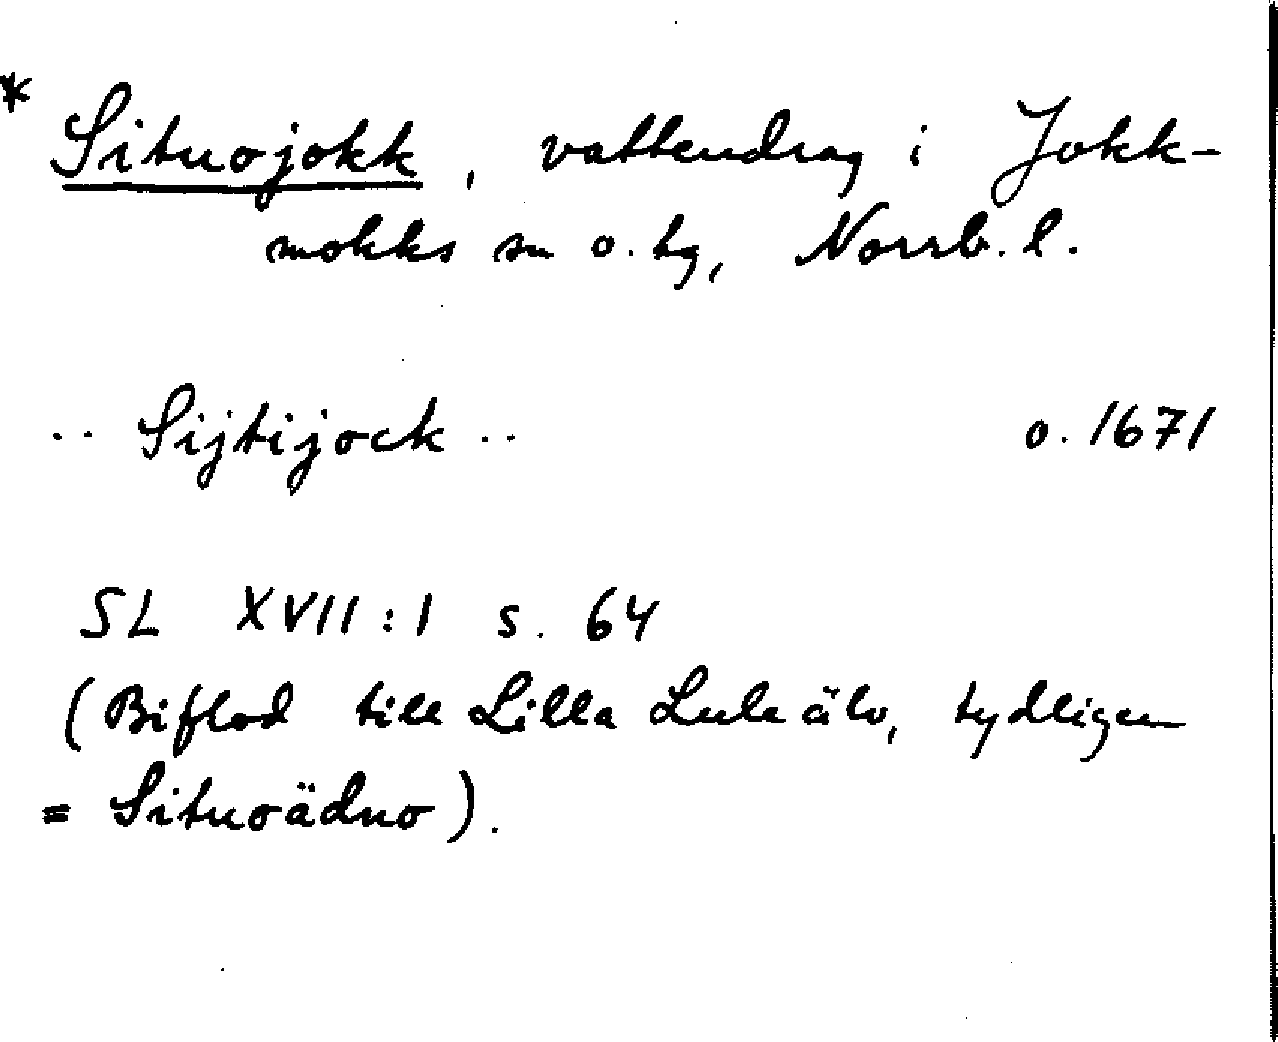 * Situojokk, vattendrag i Jokk-
mokks sn o. tg, Norrb. l.
.. Sijtijock .. o. 1671
SL XVII:1 s. 64
(Biflod till Lilla Lule älv, tydligen
= Situoädno).